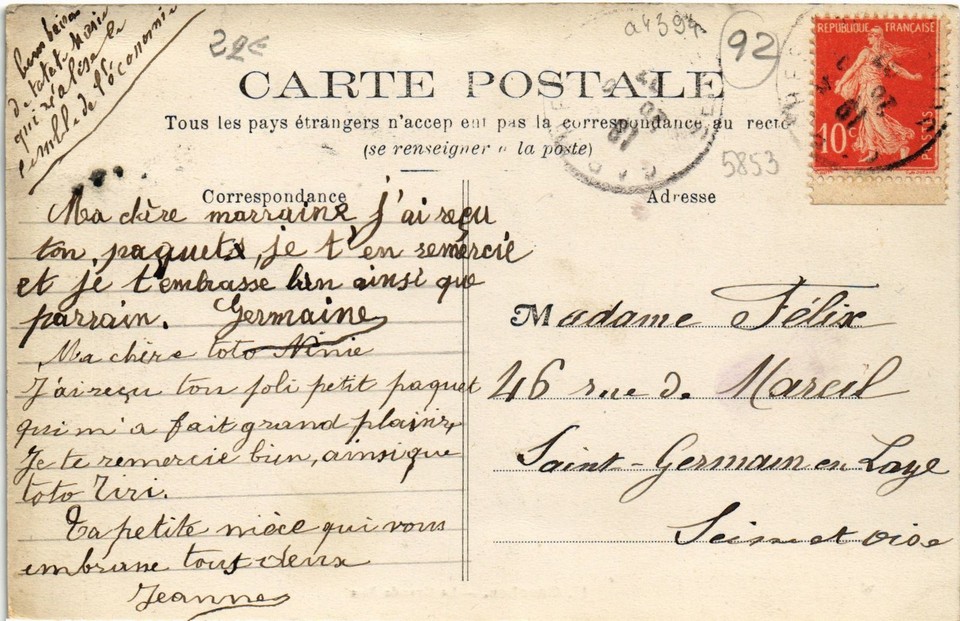 de tata Marie
qui réalise le
comble de l'économie
22€
a4394
92
CARTE POSTALE
Tous les pays étrangers n'acceptent pas la correspondance au recto
(se renseigner à la poste)
5853
REPUBLIQUE FRANÇAISE
10c
POSTES
Correspondance
Adresse
Ma chère marraine j'ai reçu
ton paquet, je t'en remercie
et je t'embrasse bien ainsi que
parrain. Germaine
Ma chère toto Ninie
J'ai reçu ton joli petit paquet
qui m'a fait grand plaisir,
Je te remercie bien, ainsi que
toto Titi.
Ta petite nièce qui vous
embrasse tous deux
Jeanne
Madame Félix
46 rue de Mareil
Saint-Germain en Laye
Seine et oise